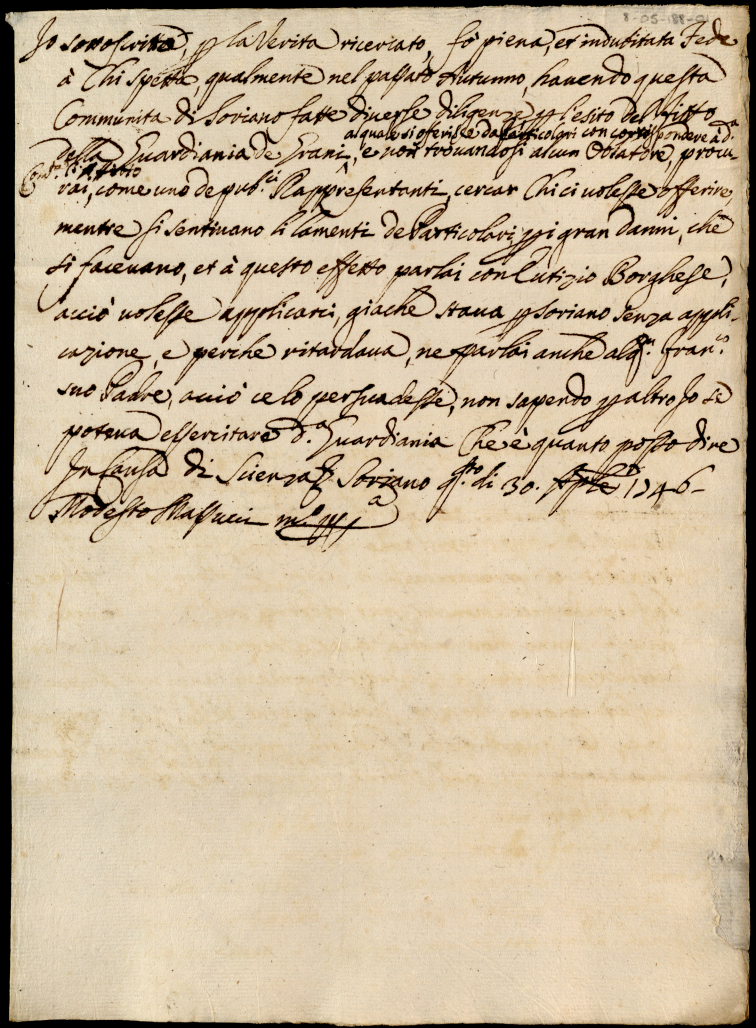 8-05-188-01
Io sottoscritto, p la Verità ricercato, fò piena, et indubitata Fede
à Chi spetta, qualmente nel passato Autunno, havendo questa
Communita di Soriano fatte diverse diligenze p l'esito del fitto
al quale si offerisse da Particolari con corrispondere à d.ª
della Guardiania de Grani, e non trovandosi alcun Oblatore, procu-
Com.tà il fitto
rai, come uno de pub.ci Rappresentanti, cercar Chi ci volesse offerire,
mentre si sentivano li lamenti de Particolari p i gran danni, che
si facevano, et à questo effetto parlai con Eutizio Borghese,
acciò volesse applicarci, giache stava p Soriano senza appli-
cazione, e perche ritardava, ne parlai anche al Sig.r Fran.co
suo Padre, acciò ce lo persuadesse, non sapendo p altro Io se
poteva essercitare d.ª Guardiania Che è quanto posso dire
In Causa di Scienza & Soriano q.sto di 30. Aple 1746-
Modesto Massucci m.º pp.ª